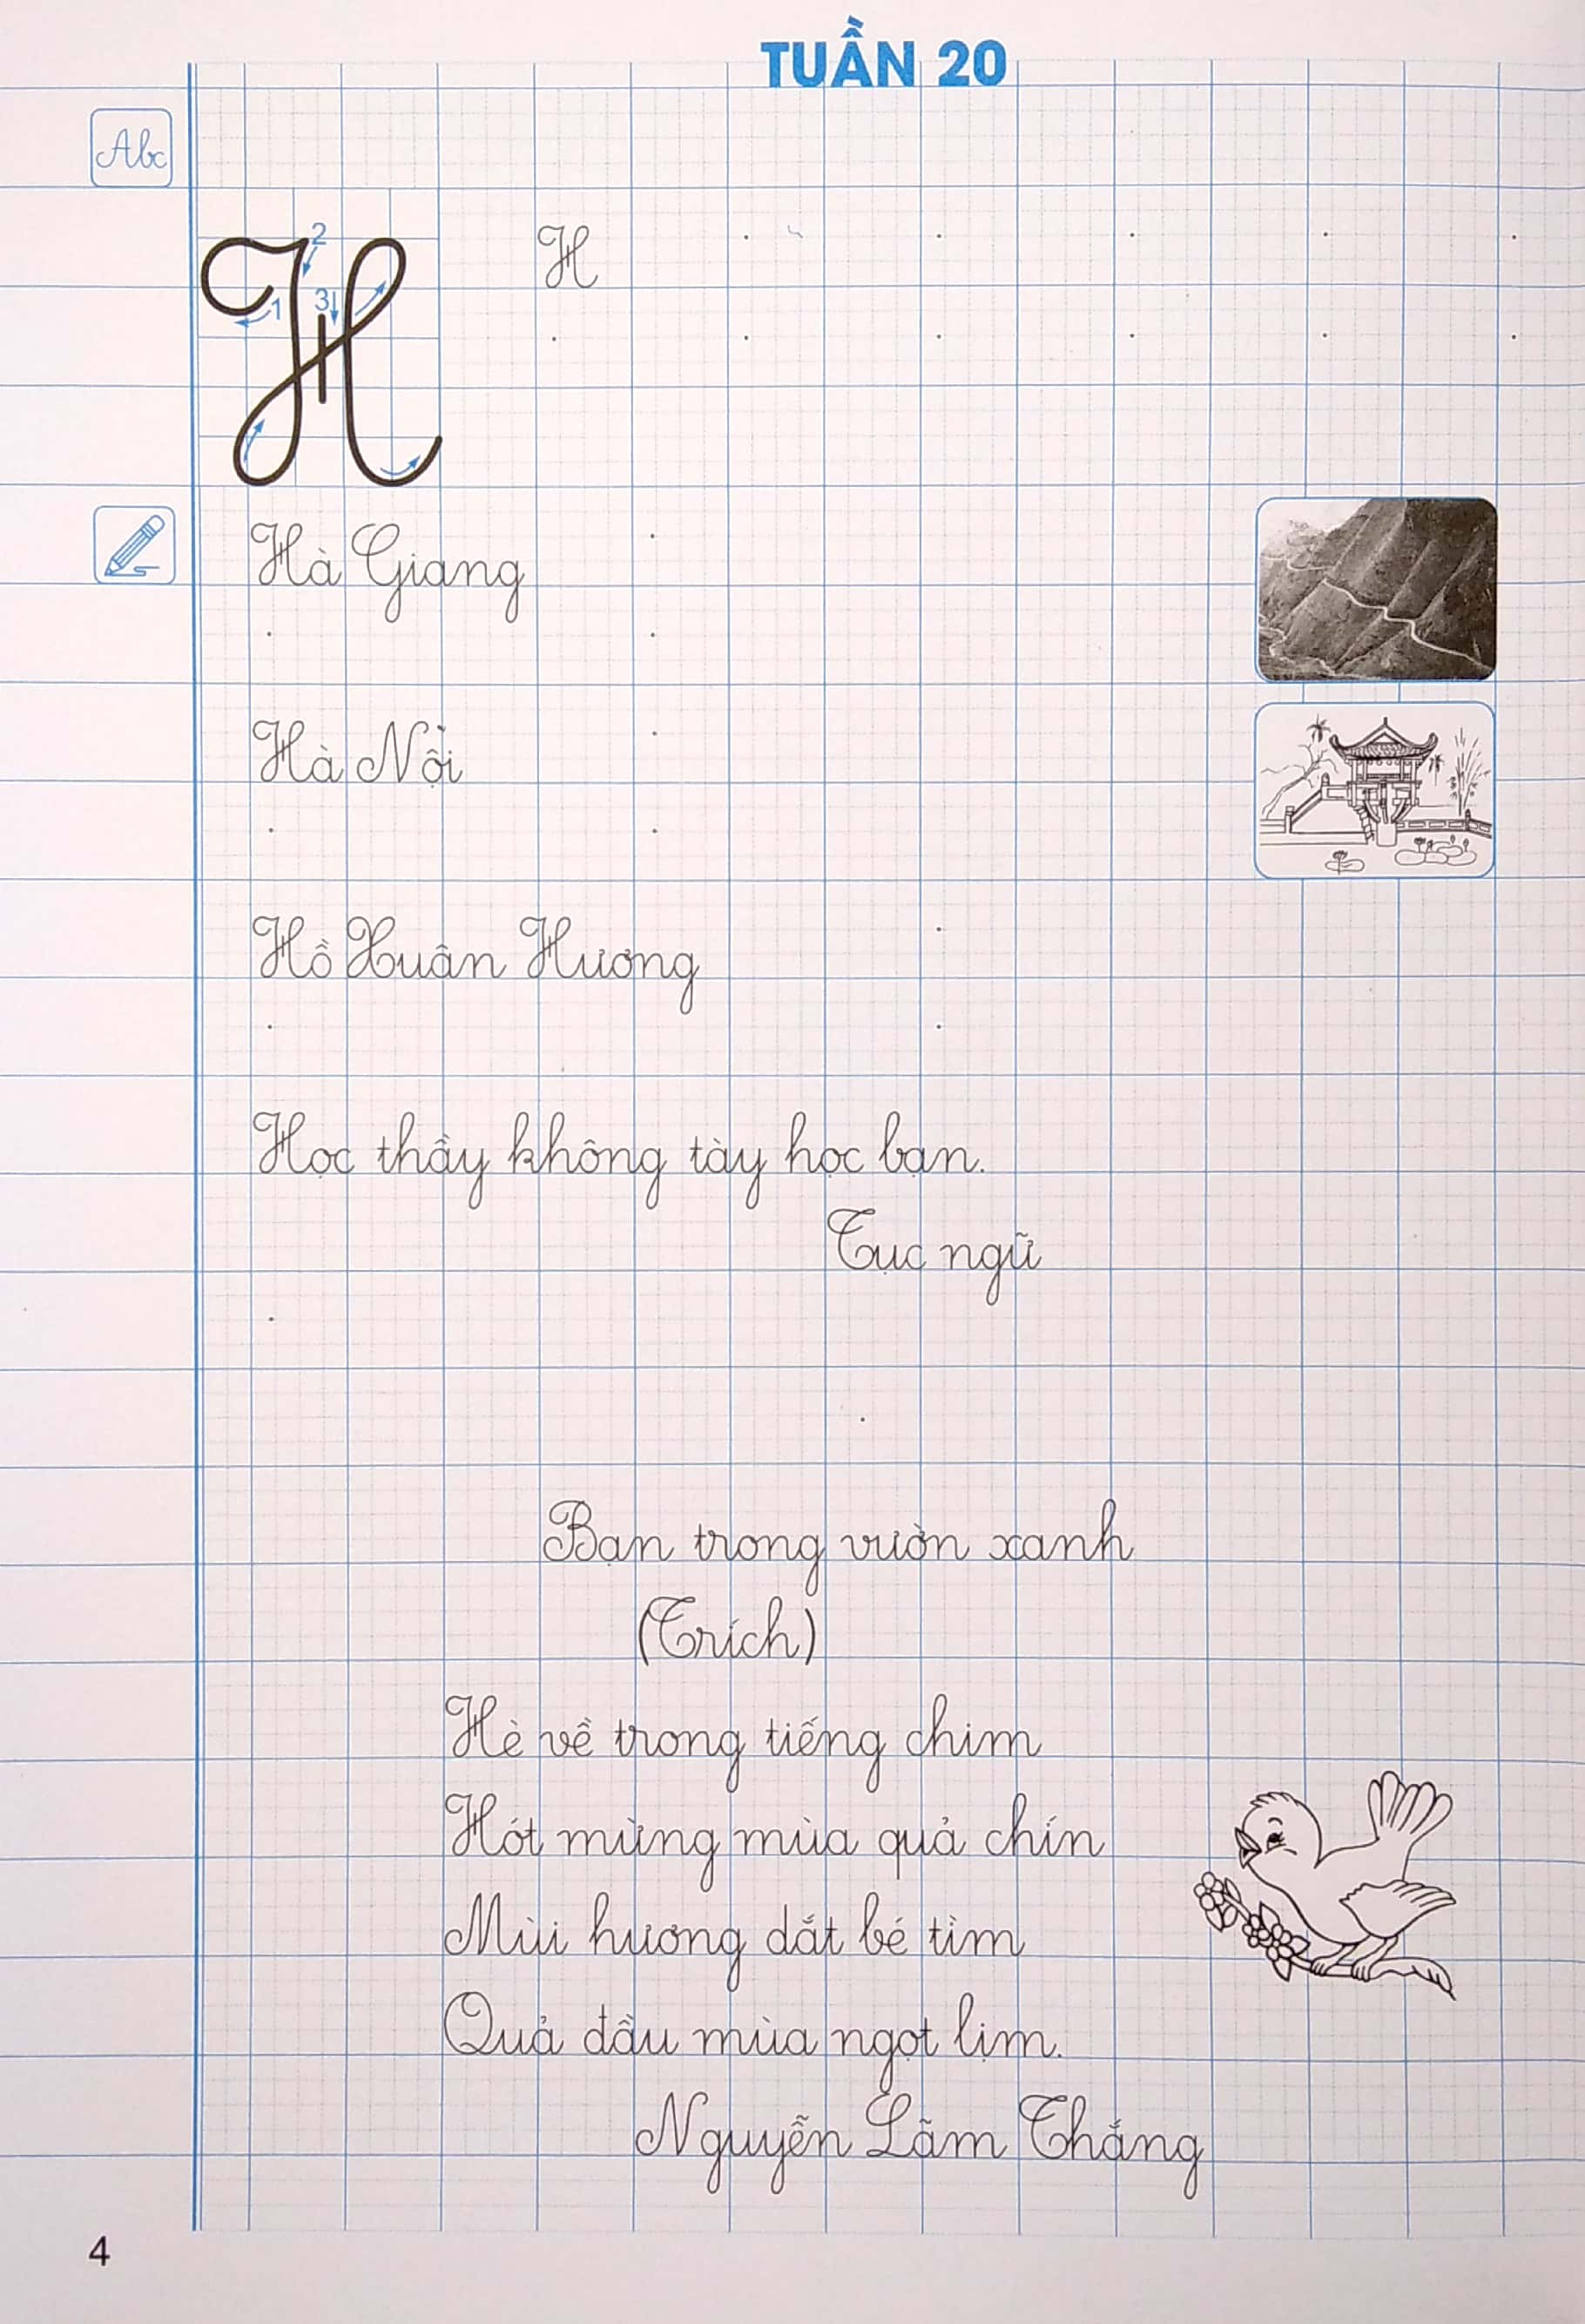 TUẦN 20
Abc
H
1 2 3
H
Hà Giang
Hà Nội
Hồ Xuân Hương
Học thầy không tày học bạn.
Tục ngữ
Bạn trong vườn xanh
(Trích)
Hè về trong tiếng chim
Hót mừng mùa quả chín
Mùi hương dắt bé tìm
Quả đầu mùa ngọt lịm.
Nguyễn Lãm Thắng
4